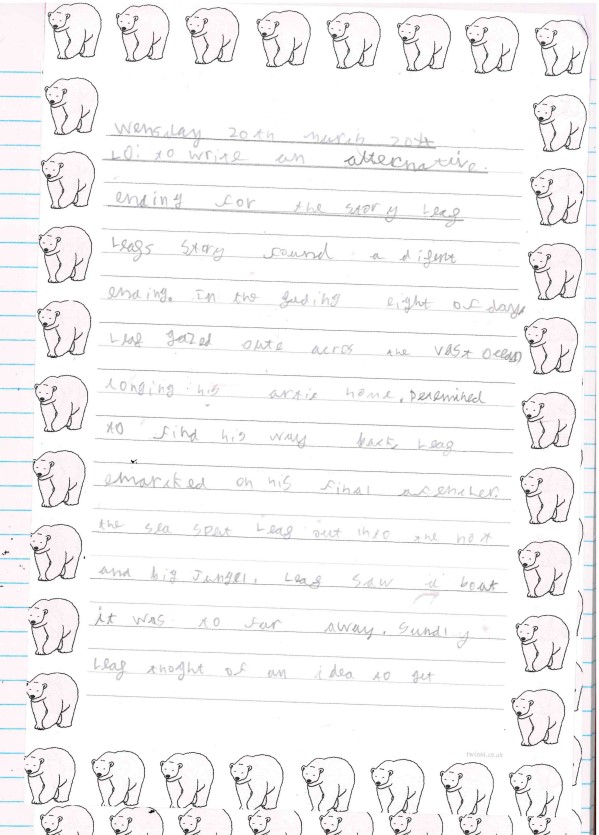 Wensday 20th march 2024
LO: to write an alternative.
ending for the story Leaf
Leafs story found a difent
ending. In the fading eight of days
Leaf gazed oute acros the vast ocean
longing his artic home. Deremined
to find his way back, Leaf
emarcked on his final
the sea spat Leaf out into the hot
and big Jungel. Leaf saw a boat
it was to far away. Sundly
Leaf thoght of an idea to get
twinkl.co.uk